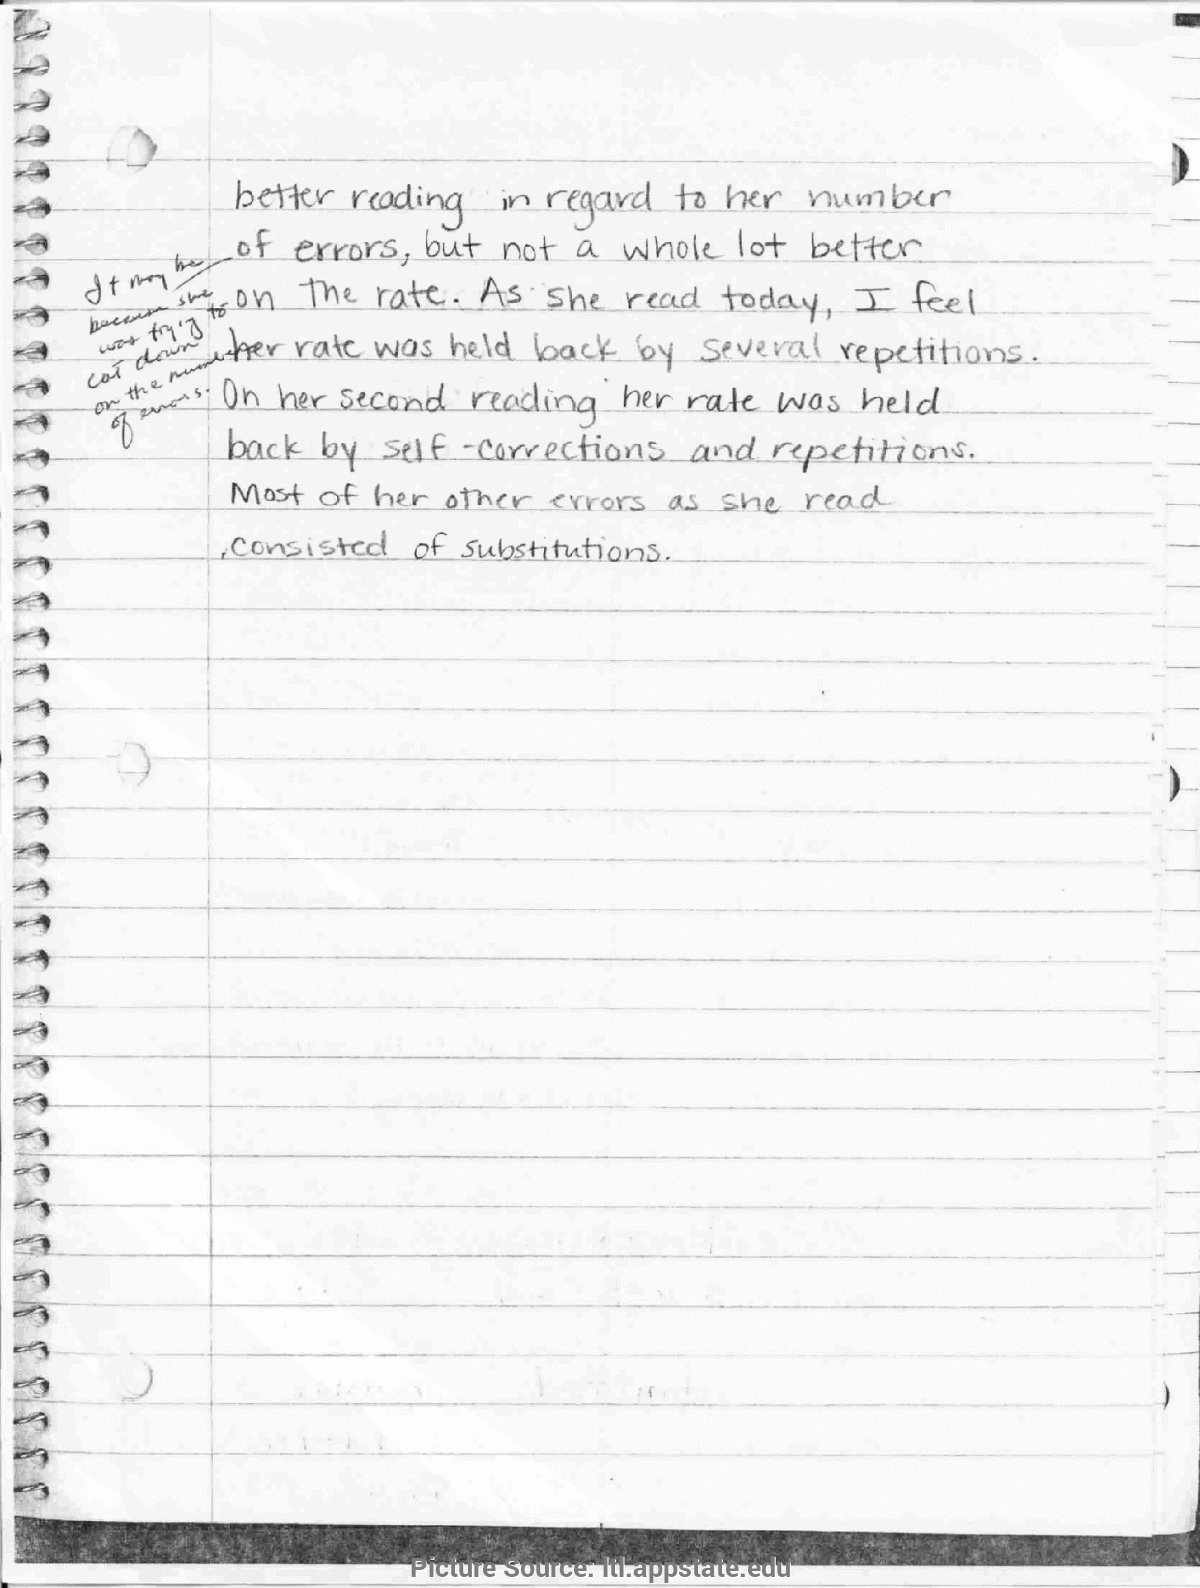 better reading in regard to her number
of errors, but not a whole lot better
on the rate. As she read today, I feel
her rate was held back by several repetitions.
On her second reading her rate was held
back by self-corrections and repetitions.
Most of her other errors as she read
consisted of substitutions.
It may be
because she
was trying to
cut down
on the number
of errors.
Picture Source: ltl.appstate.edu